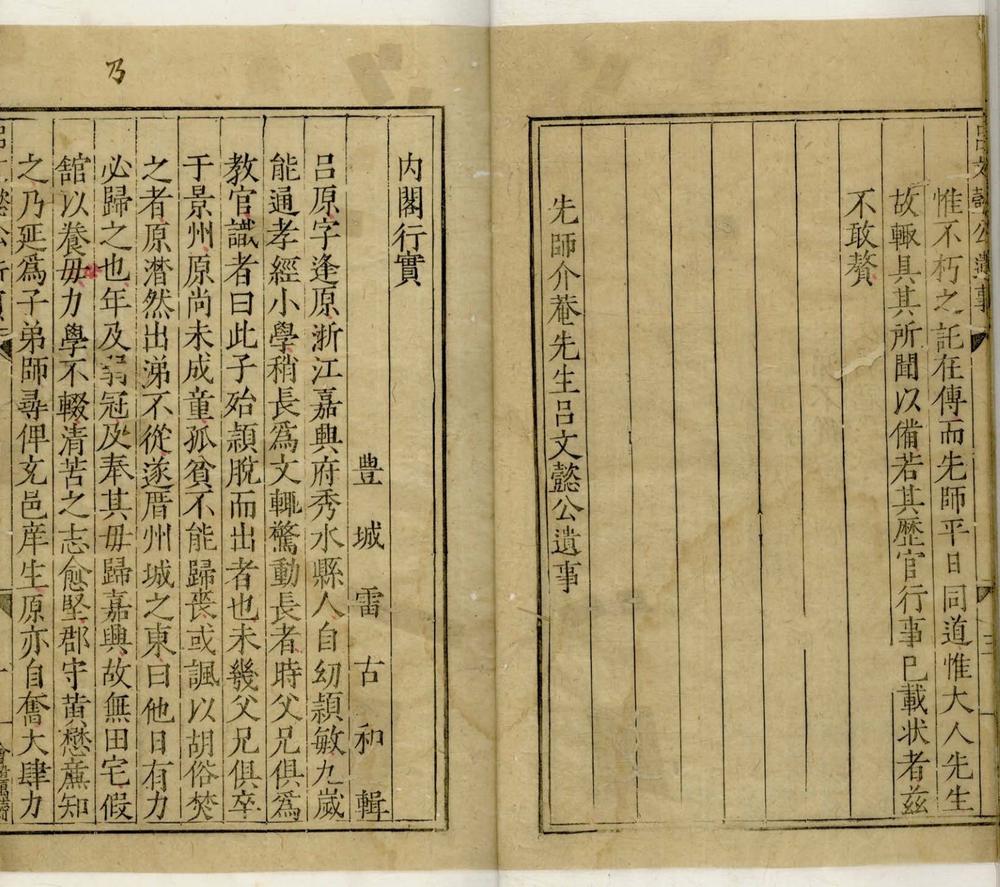 惟不朽之託在傳而先師平日同道惟大人先生
故輙具其所聞以備若其歷官行事已載状者茲
不敢贅
先師介菴先生吕文懿公遺事
乃
内閣行實
豊城雷古和輯
吕原字逢原浙江嘉興府秀水縣人自幼頴敏九歲
能通孝經小學稍長爲文輙驚動長者時父兄俱爲
教官識者曰此子殆頴脫而出者也未幾父兄俱卒
于景州原尚未成童孤貧不能歸喪或諷以胡俗焚
之者原潸然出涕不從遂厝州城之東曰他日有力
必歸之也年及弱冠及奉其毋歸嘉興故無田宅假
舘以養毋力學不輟清苦之志愈堅郡守黄懋廉知
之乃延爲子弟師尋俾充邑庠生原亦自奮大肆力